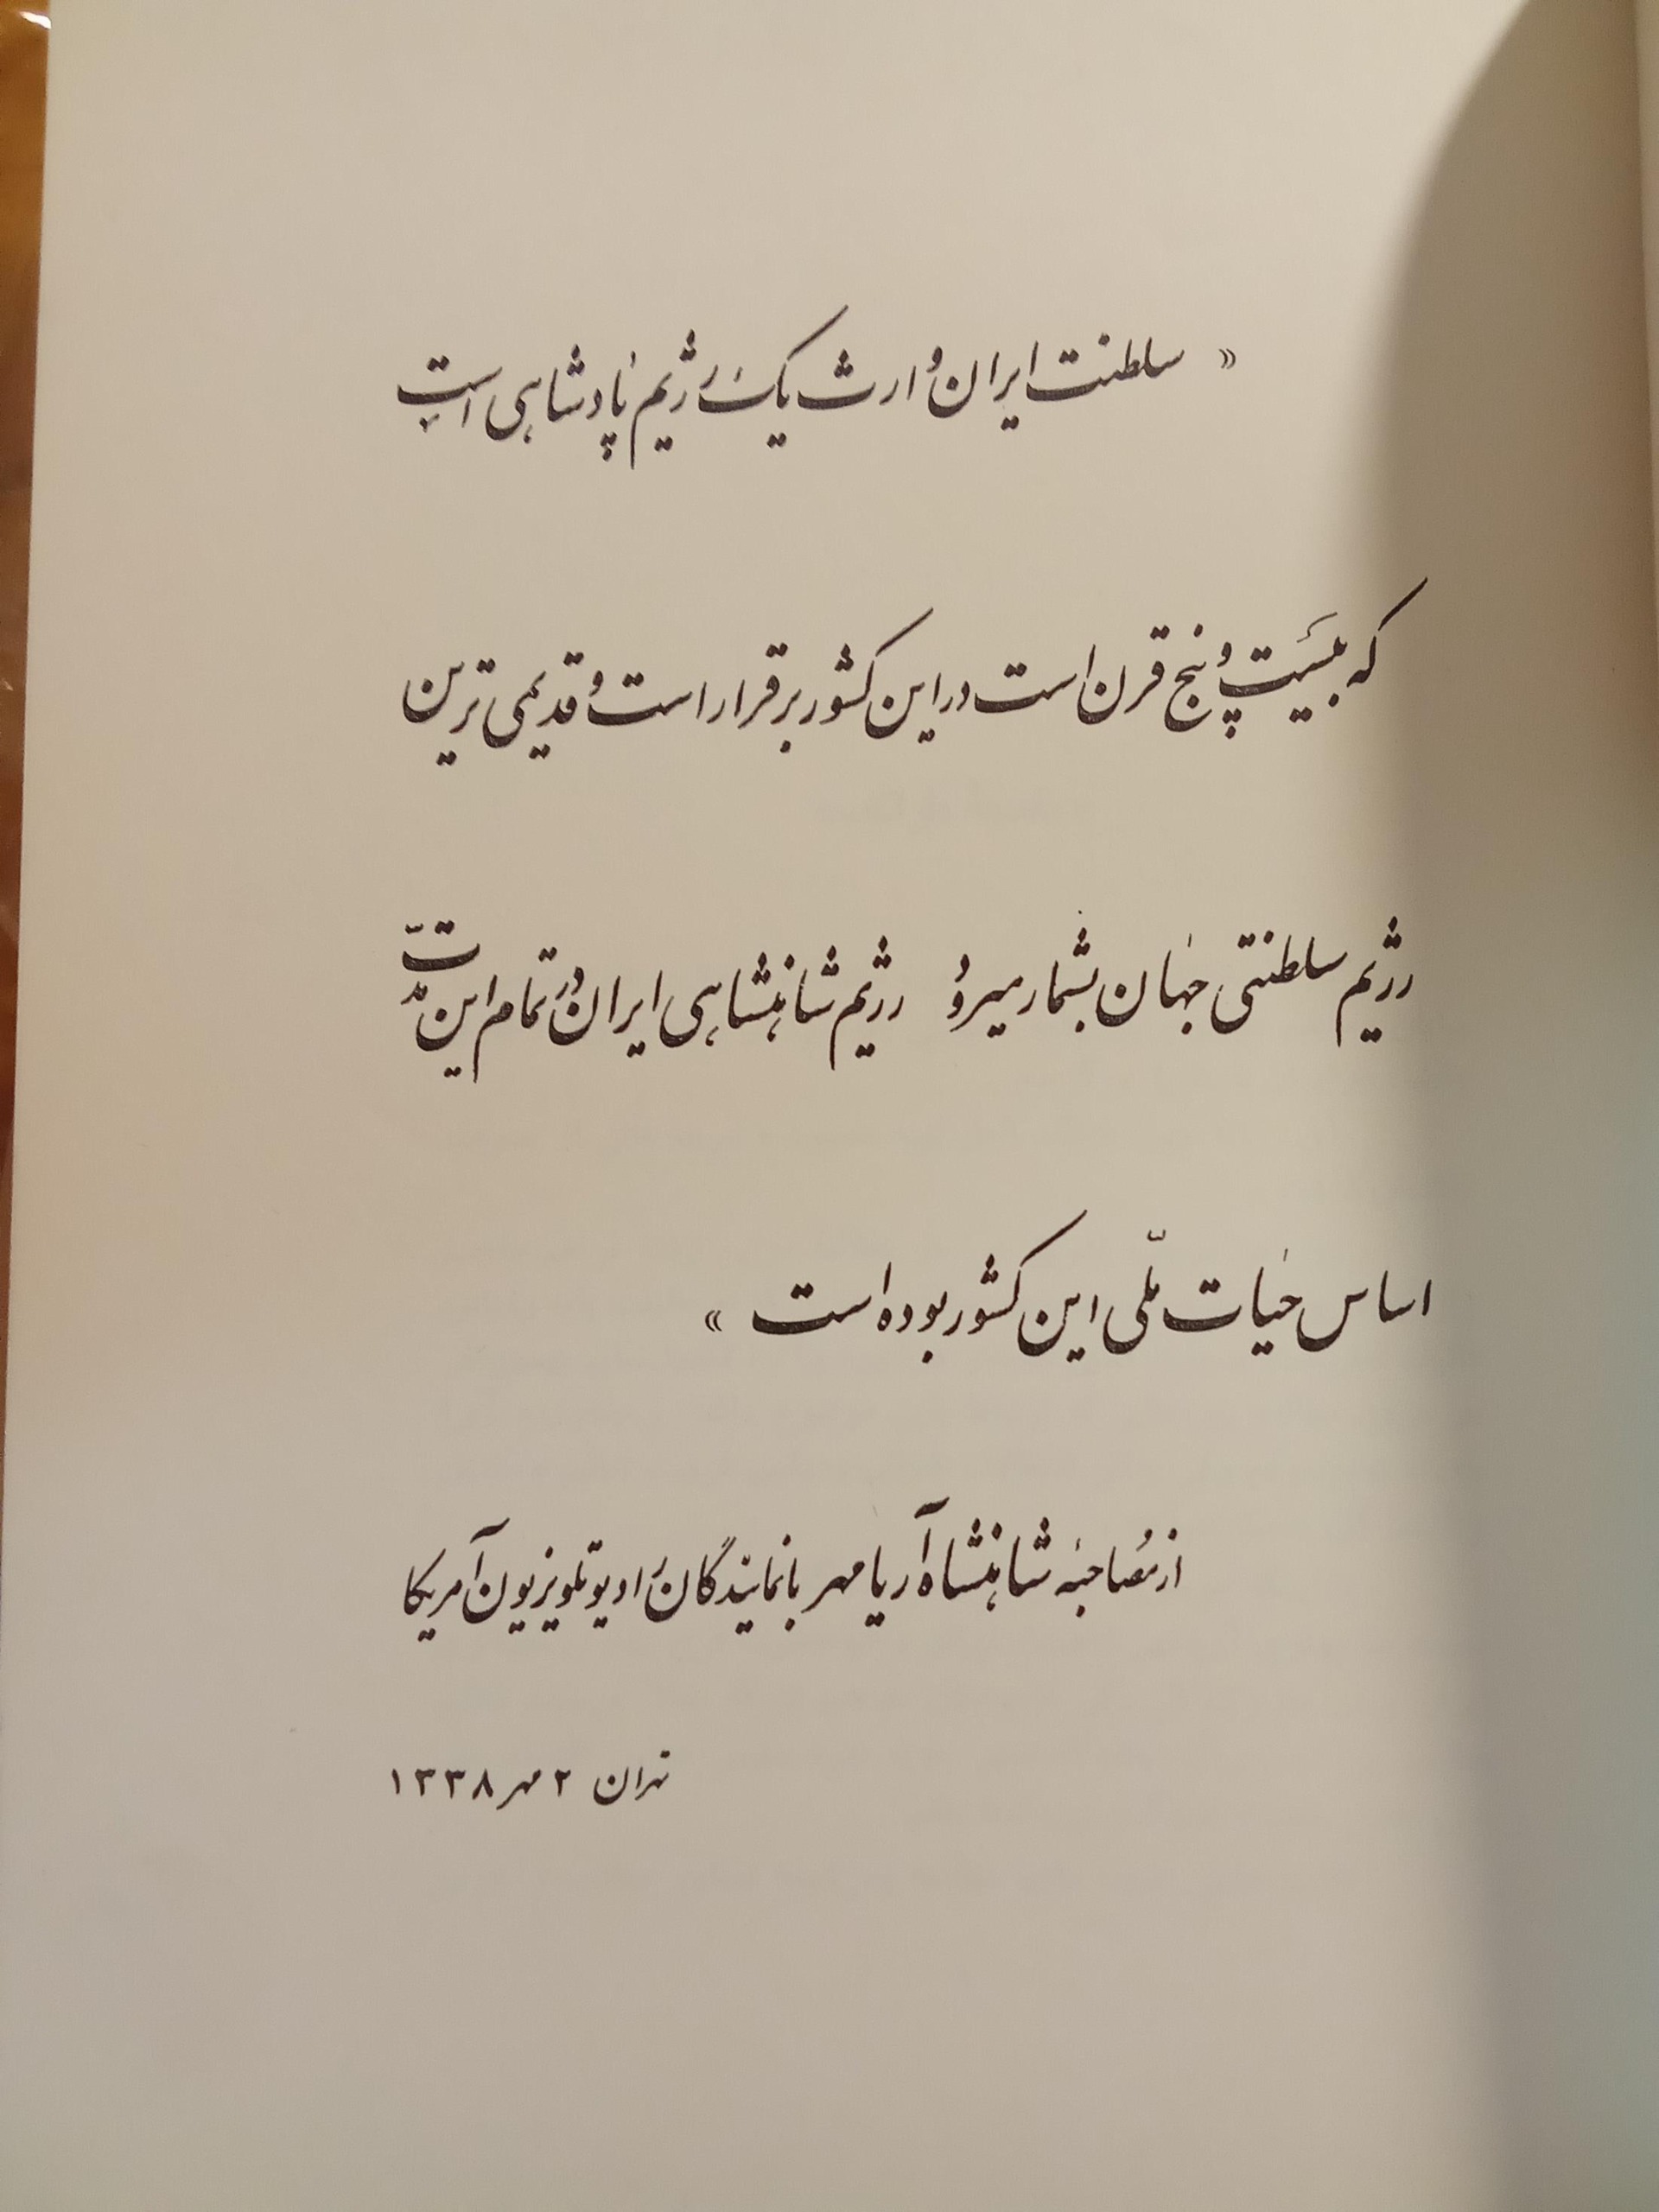 « سلطنت ایران وارث یک رژیم پادشاهی است
که بیست و پنج قرن است در این کشور برقرار است و قدیمی ترین
رژیم سلطنتی جهان بشمار میرود رژیم شاهنشاهی ایران در تمام این مدّت
اساس حیات ملّی این کشور بوده است »
از مصاحبه شاهنشاه آریامهر با نمایندگان رادیو تلویزیون آمریکا
تهران ۲ مهر ۱۳۳۸